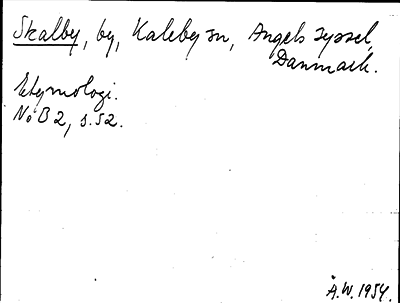 Skalby, by, Kaleby sn, Angels syssel,
Danmark.
Etymologi.
NoB 2, s. 52.
Å.W. 1954.